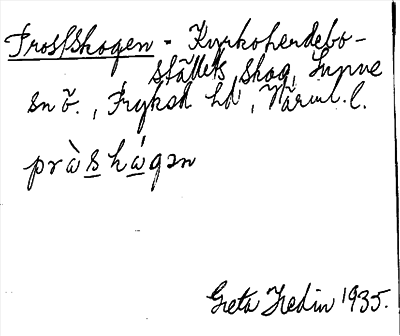 Prostskogen - Kyrkoherdebo-
ställets skog, Sunne
sn ö., Fryksd hd, Värml. l.
pràs hágən
Greta Hedin 1935.